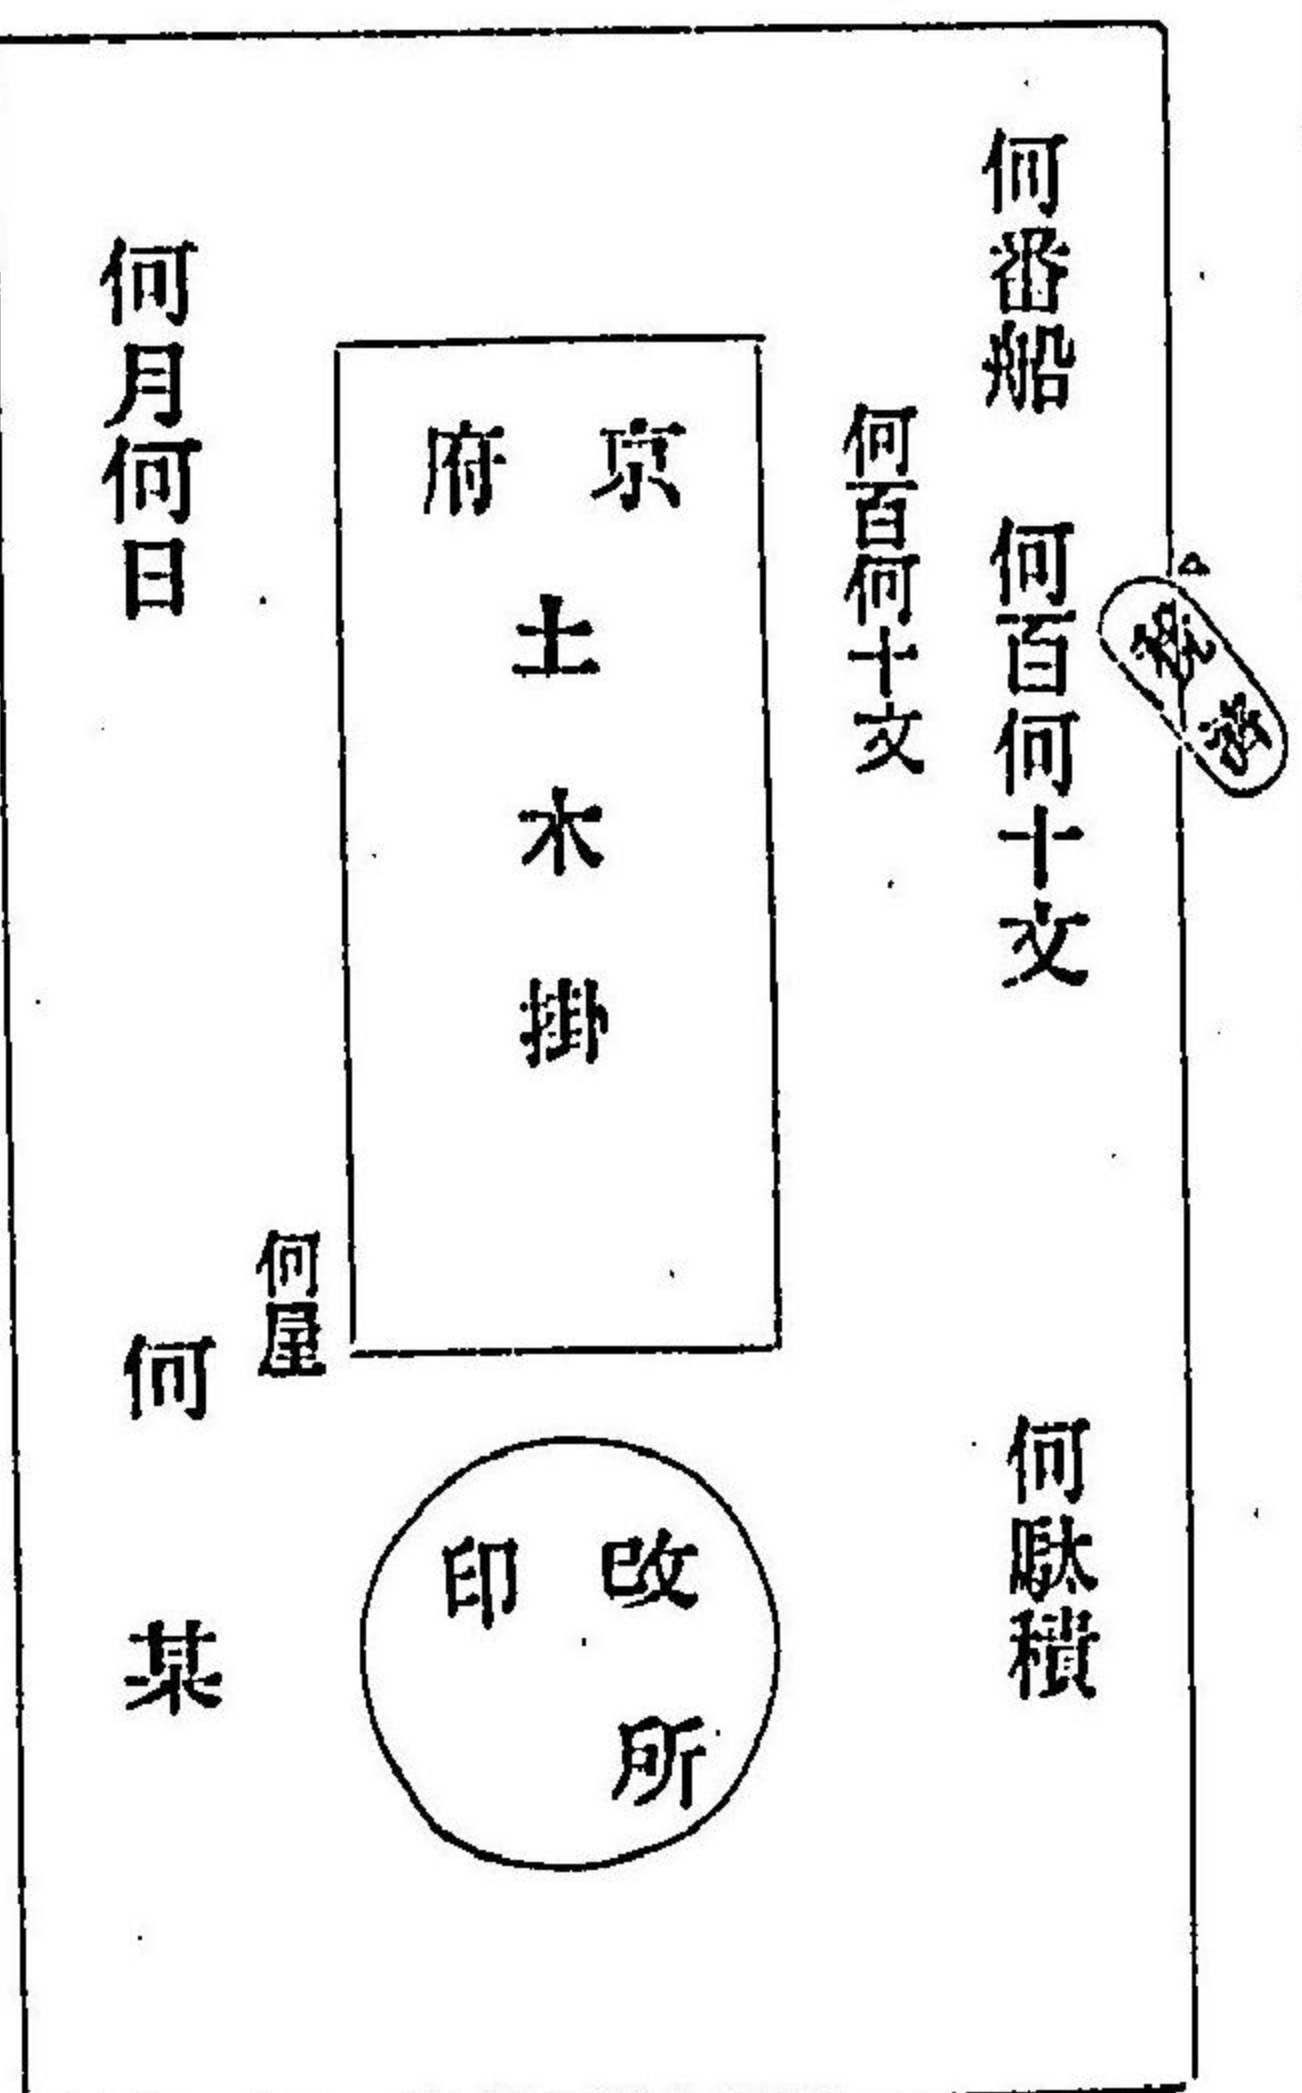 何番船　何百何十文　何駄積
何百何十文
京府
土木掛
改所
印
何屋
何月何日　何　某